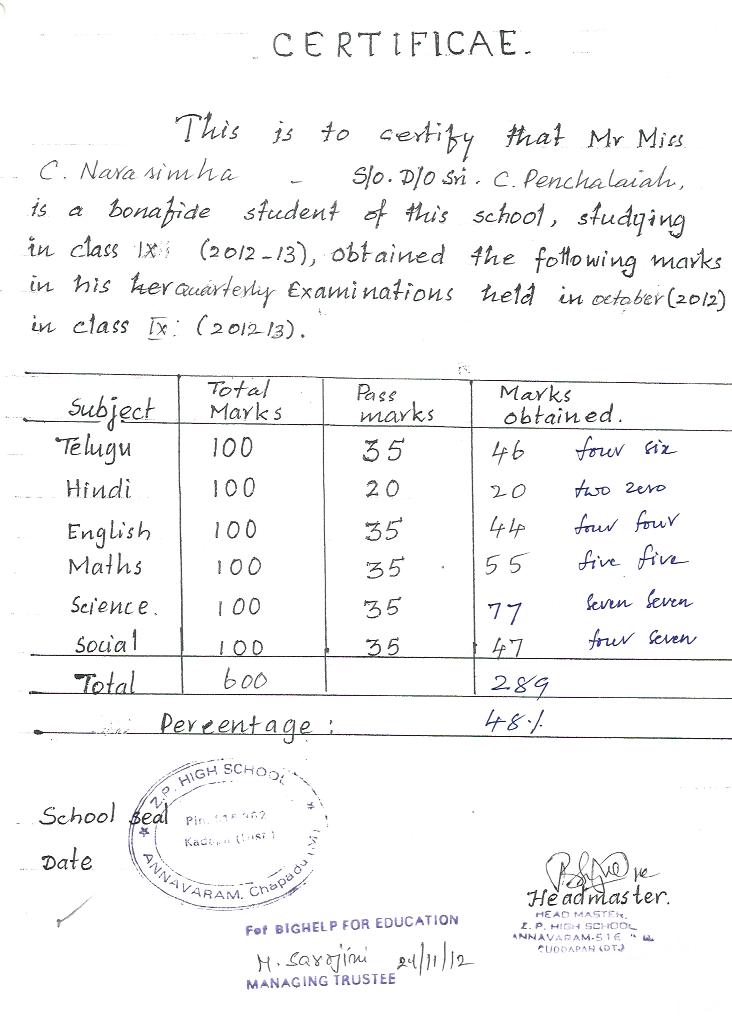 CERTIFICAE.
This is to certify that Mr Miss
C. Narasimha - S/o. D/o Sri. C. Penchalaiah,
is a bonafide student of this school, studying
in class IX: (2012-13), obtained the following marks
in his her quarterly Examinations held in october (2012)
in class IX: (2012 13).
Subject Total Marks Pass marks Marks obtained.
Telugu 100 35 46 four six
Hindi 100 20 20 two zero
English 100 35 44 four four
Maths 100 35 55 five five
Science. 100 35 77 seven seven
Social 100 35 47 four seven
Total 600 289
Percentage: 48%
Z.P. HIGH SCHOOL
School seal
Pin.
Date
ANNAVARAM, Chapadu (M)
Headmaster.
HEAD MASTER,
Z. P. HIGH SCHOOL
ANNAVARAM-516
CUDDAPAH (DT.)
For BIGHELP FOR EDUCATION
M. Sarojini 24/11/12
MANAGING TRUSTEE